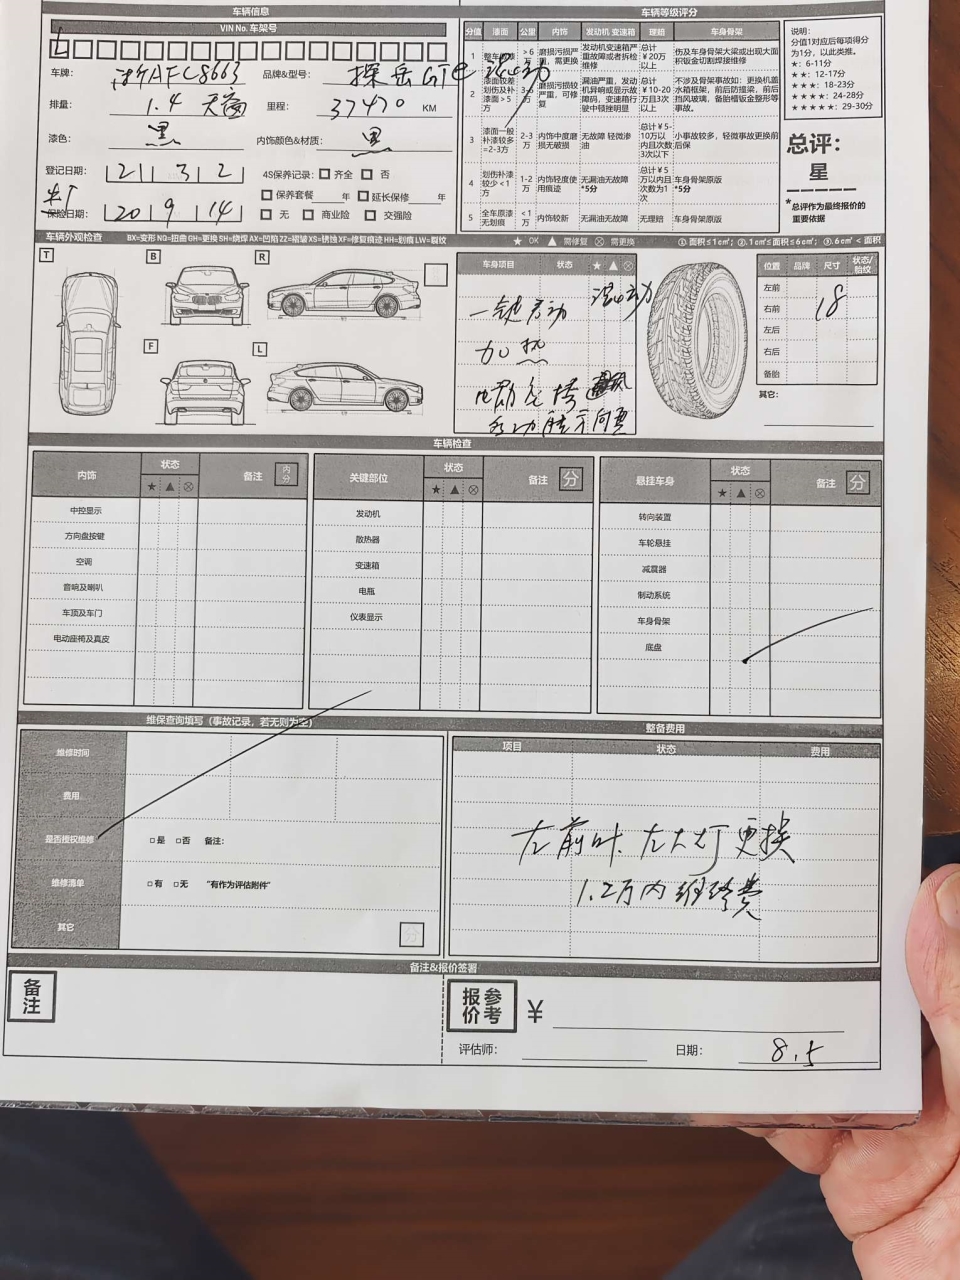 车辆信息
车辆等级评分
VIN No. 车架号
L
车牌: 浙AFC8663
品牌&型号: 探岳GTE 混动
排量: 1.4 天窗
里程: 37470 KM
漆色: 黑
内饰颜色&材质: 黑
登记日期: 21 3 2
4S保养记录: □ 齐全 □ 否
□ 保养套餐 年 □ 延长保修 年
保险日期: 20 9 14
□ 无 □ 商业险 □ 交强险
分值 漆面 公里 内饰 发动机 变速箱 理赔 车身骨架
1 >6万 磨损污损严重，需更换 发动机变速箱严重故障或者拆检维修 总计¥20万以上 伤及车身骨架大梁或出现大面积钣金切割焊接维修
2 漆面较差 划伤及补漆面>5方 3-6万 磨损污损较严重，可修复 漏油严重，发动机异响或显示故障码，变速箱行驶中顿挫明显 总计¥10-20万且3次以上 不涉及骨架事故如：更换机盖水箱框架，前后防撞梁，前后挡风玻璃，备胎槽钣金整形等事故。
3 漆面一般 补漆较多=2-3方 2-3万 内饰中度磨损无破损 无故障 轻微渗油 总计¥5-10万以内且次数3次以下 小事故较多，轻微事故更换前后保
4 划伤补漆较少<1方 1-2万 内饰轻度使用痕迹 无漏油无故障 *5分 总计¥5万以内且次数为1次 车身骨架原版 *5分
5 全车原漆无划痕 <1万 内饰较新 无漏油无故障 无理赔 车身骨架原版
说明:
分值1对应后每项得分为1分，以此类推。
★: 6-11分
★★: 12-17分
★★★: 18-23分
★★★★: 24-28分
★★★★★: 29-30分
总评:
星
*总评作为最终报价的重要依据
车辆外观检查
BX=变形 NQ=扭曲 GH=更换 SH=烧焊 AX=凹陷 ZZ=褶皱 XS=锈蚀 XF=修复痕迹 HH=划痕 LW=裂纹
★ OK ▲ 需修复 ⊗ 需更换
① 面积≤1cm²; ② 1cm²≤面积≤6cm²; ③ 6cm²<面积
T
B
R
F
L
车身项目 状态 ★ ▲ ⊗
一键启动 混动
加热
位置 品牌 尺寸 状态/胎纹
左前
右前
左后
右后
备胎
18
其它:
车辆检查
内饰 状态 ★ ▲ ⊗ 备注 内分
中控显示
方向盘按键
空调
音响及喇叭
车顶及车门
电动座椅及真皮
关键部位 状态 ★ ▲ ⊗ 备注 分
发动机
散热器
变速箱
电瓶
仪表显示
悬挂车身 状态 ★ ▲ ⊗ 备注 分
转向装置
车轮悬挂
减震器
制动系统
车身骨架
底盘
维保查询填写（事故记录，若无则为空）
维修时间
费用
是否授权维修 □是 □否 备注:
维修清单 □有 □无 "有作为评估附件"
其它
分
整备费用
项目 状态 费用
左前叶. 左大灯更换
1.2万内维修费
备注&报价签署
备注
参考报价 ¥
评估师:
日期: 8.5